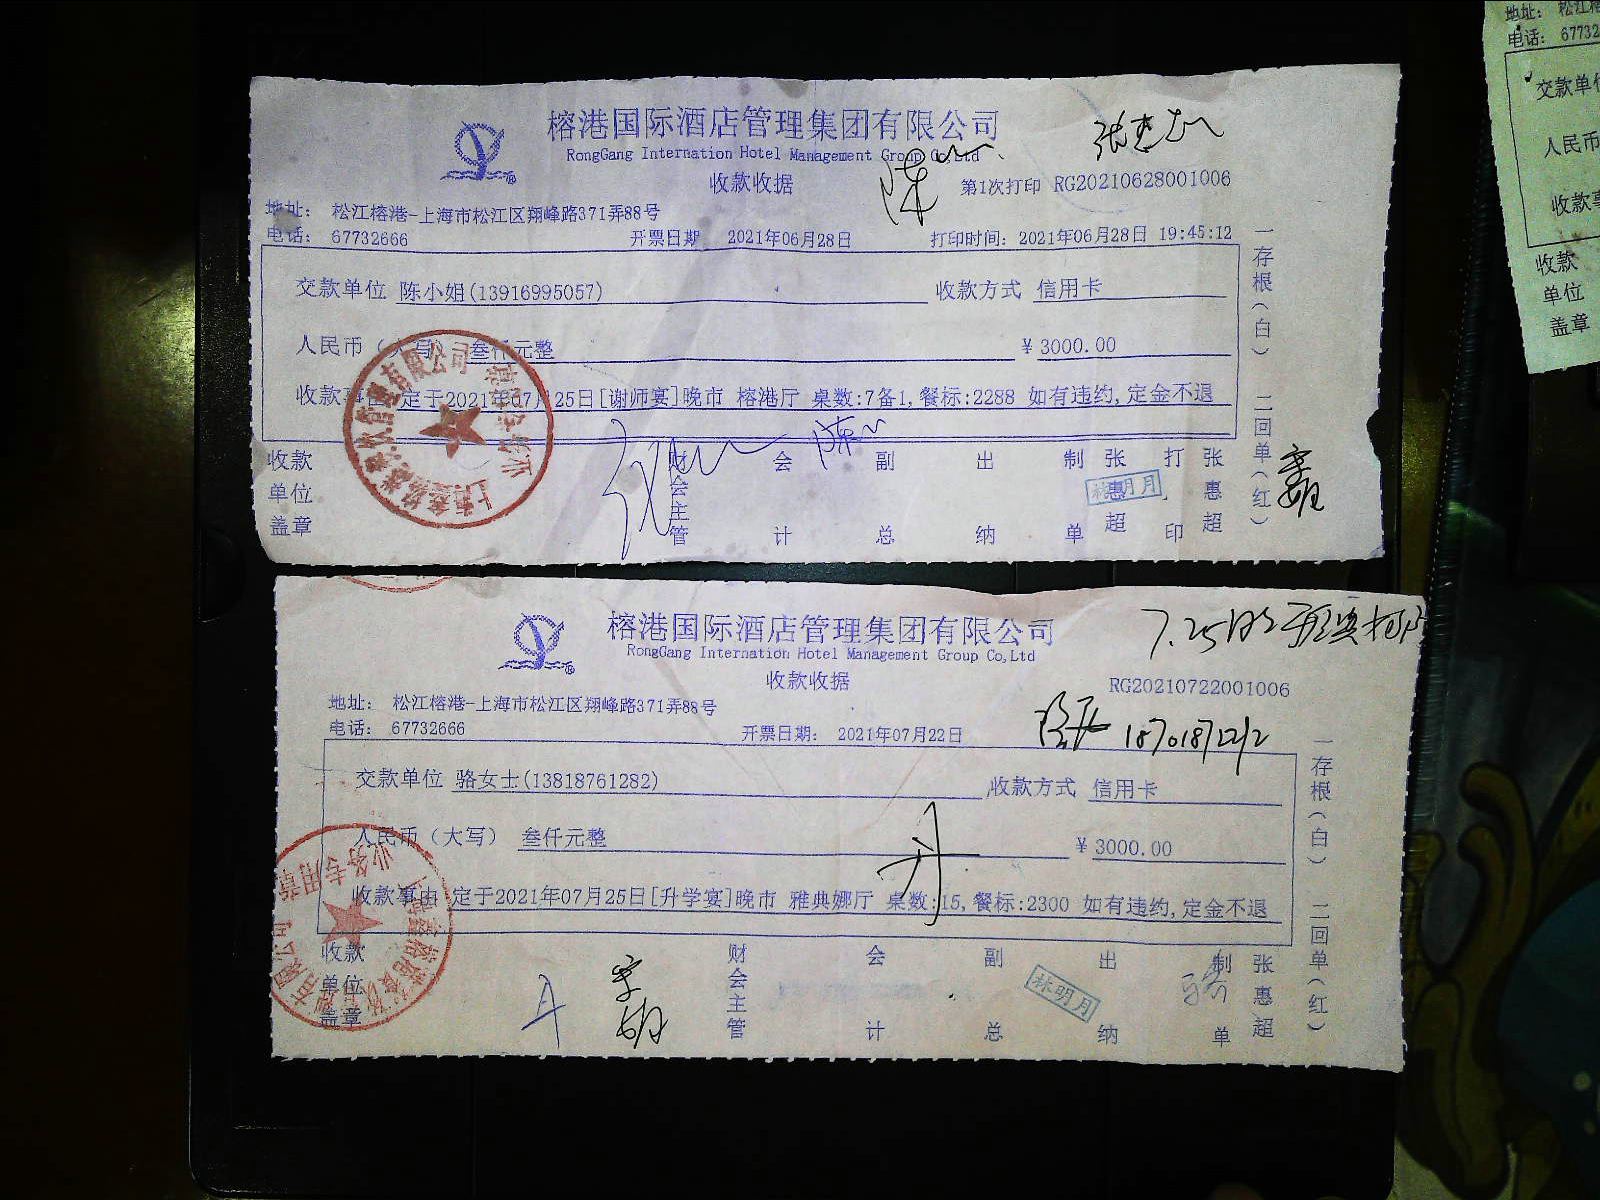 榕港国际酒店管理集团有限公司
RongGang Internation Hotel Management Group Co,Ltd
收款收据
第1次打印 RG20210628001006
地址: 松江榕港-上海市松江区翔峰路371弄88号
电话: 67732666 开票日期 2021年06月28日 打印时间: 2021年06月28日 19:45:12
交款单位 陈小姐(13916995057) 收款方式 信用卡
人民币(大写) 叁仟元整 ¥3000.00
收款事由 定于2021年07月25日[谢师宴]晚市 榕港厅 桌数:7备1,餐标:2288 如有违约,定金不退
收款单位盖章 财会主管 会计 副总 出纳 制单 张惠超 打印 张惠超
林明月
一存根(白) 二回单(红)
榕港国际酒店管理集团有限公司
RongGang Internation Hotel Management Group Co,Ltd
收款收据
RG20210722001006
地址: 松江榕港-上海市松江区翔峰路371弄88号
电话: 67732666 开票日期: 2021年07月22日
交款单位 骆女士(13818761282) 收款方式 信用卡
人民币(大写) 叁仟元整 ¥3000.00
收款事由 定于2021年07月25日[升学宴]晚市 雅典娜厅 桌数:15,餐标:2300 如有违约,定金不退
收款单位盖章 财会主管 会计 副总 出纳 制单 张惠超
林明月
业务专用章
一存根(白) 二回单(红)
地址: 松江榕
电话: 67732
交款单位
人民币
收款事
收款
单位
盖章